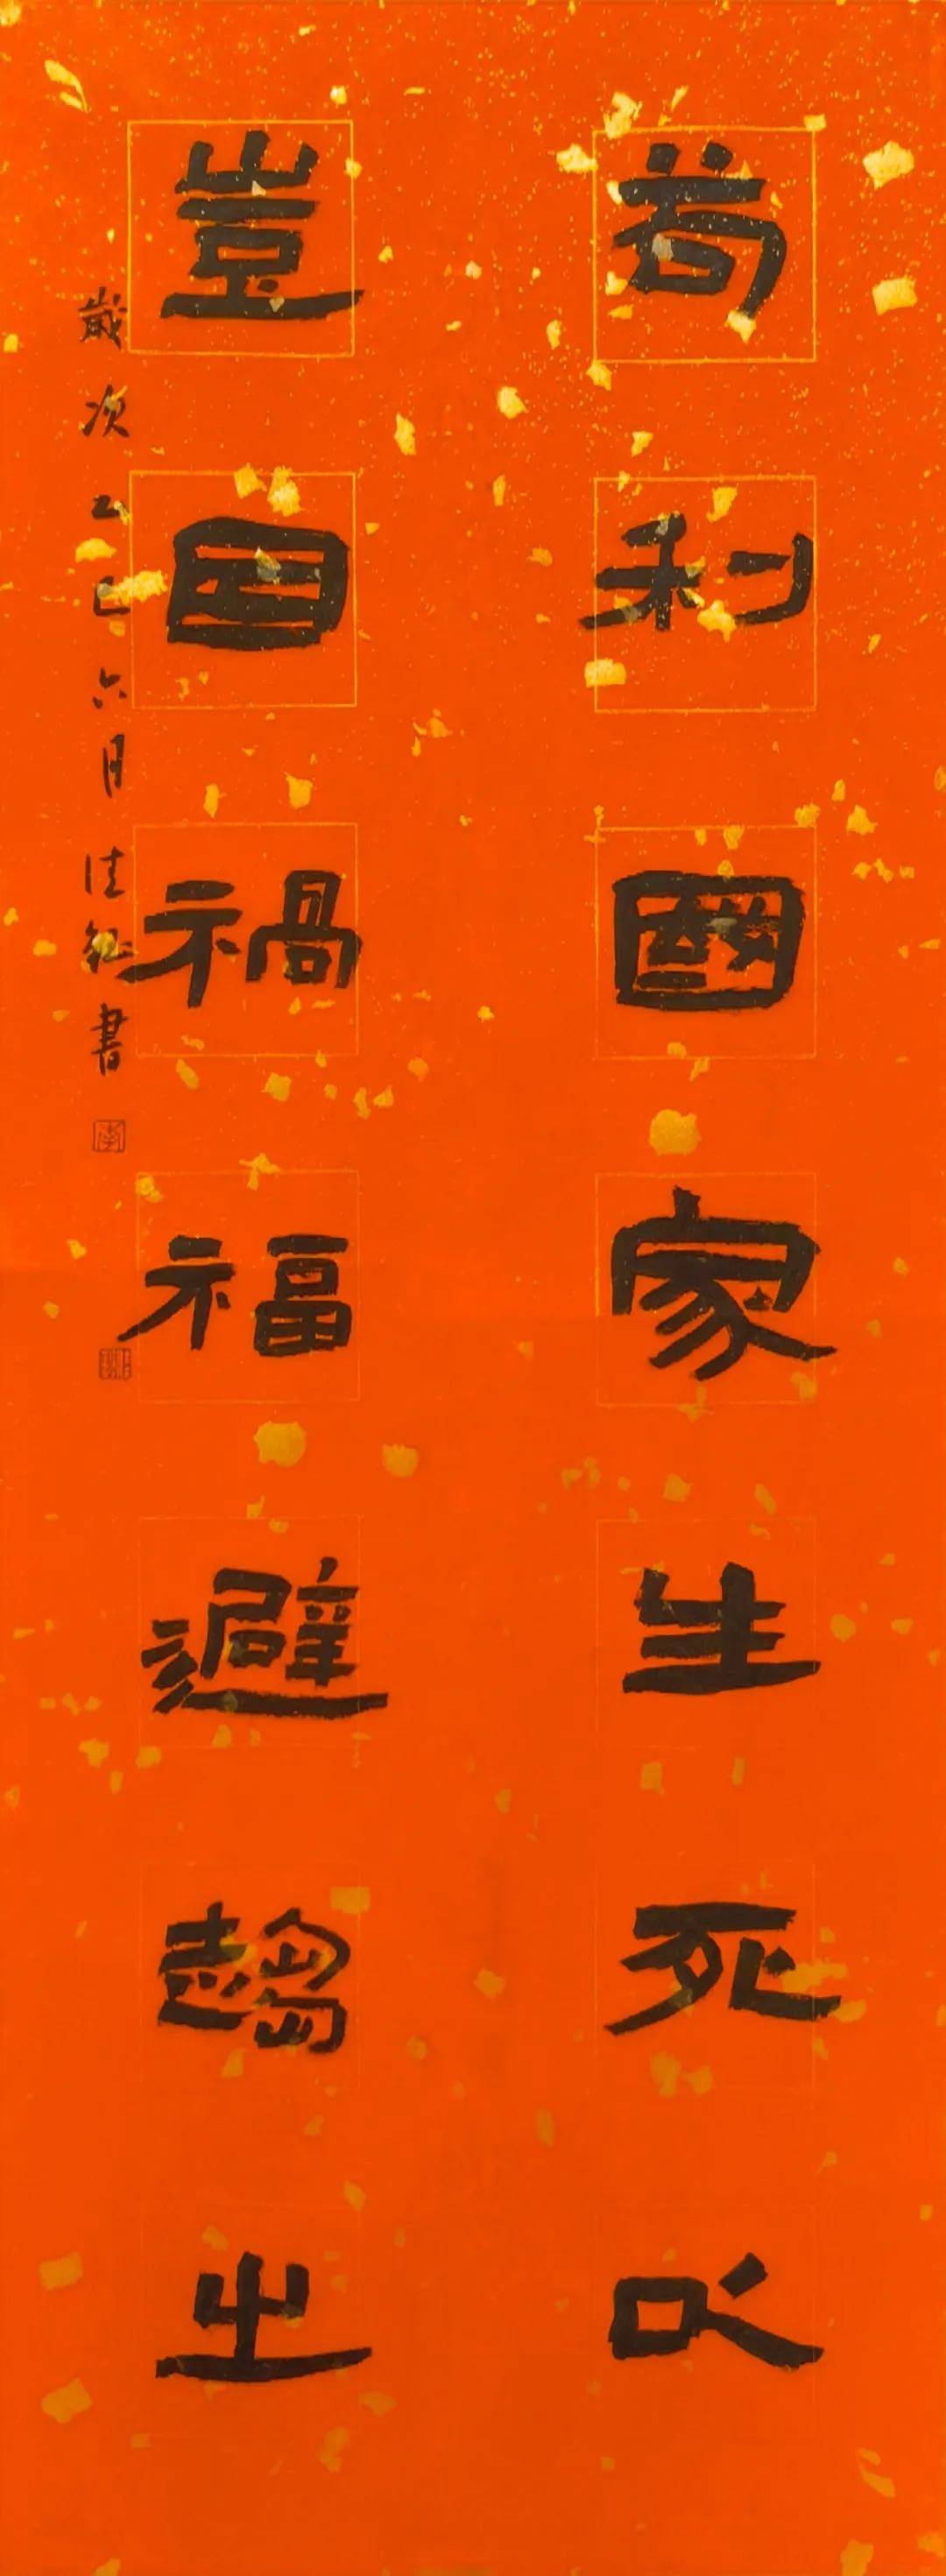 苟利國家生死以
豈因禍福避趨之
歲次乙巳六月佳紅書